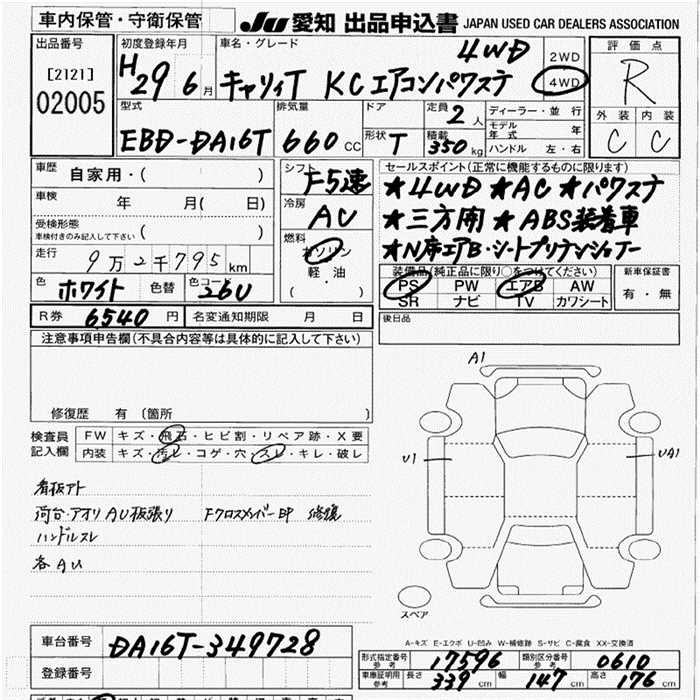 車内保管・守衛保管
JU 愛知 出品申込書 JAPAN USED CAR DEALERS ASSOCIATION
出品番号
[2121]
02005
初度登録年月
H29 6月
車名・グレード
4WD
キャリィT KCエアコンパワステ
2WD
4WD
評価点
R
外装 内装
C C
型式
EBD-DA16T
排気量
660 CC
ドア
形状 T
定員 2人
積載 350 kg
ディーラー・並行
モデル年式 年
ハンドル 左・右
車歴 自家用・( )
車検 年 月( 日)
受検形態
車検付きのみ記入して下さい ( )
走行 9万2千795 km
色 ホワイト 色替 色コード 26U
シフト F5速
冷房 AC
燃料
ガソリン
軽・油
( ・ )
セールスポイント(正常に機能するものに限ります)
★4WD ★AC ★パワステ
★三方開 ★ABS装着車
★N席エアB・シートプリテンショナー
装備品(純正品に限り○をつけてください)
PS PW エアB AW
SR ナビ TV カワシート
新車保証書
有・無
R券 6540円 名変通知期限 月 日
後日品
注意事項申告欄(不具合内容等は具体的に記入して下さい)
修復歴 有 (箇所 )
検査員記入欄
FW キズ・飛石・ヒビ割・リペア跡・X要
内装 キズ・汚レ・コゲ・穴・スレ・キレ・破レ
看板アト
荷台・アオリ AU 板張り Fクロスメンバー 曲 修復
ハンドルスレ
各AU
A1
U1
UA1
スペア
A-キズ E-エクボ U-凹み W-補修跡 S-サビ C-腐食 XX-交換済
車台番号 DA16T-349728
登録番号
形式指定番号 参考 17596 類別区分番号 参考 0610
車庫証明用 参考 長さ 339 cm 幅 147 cm 高さ 176 cm